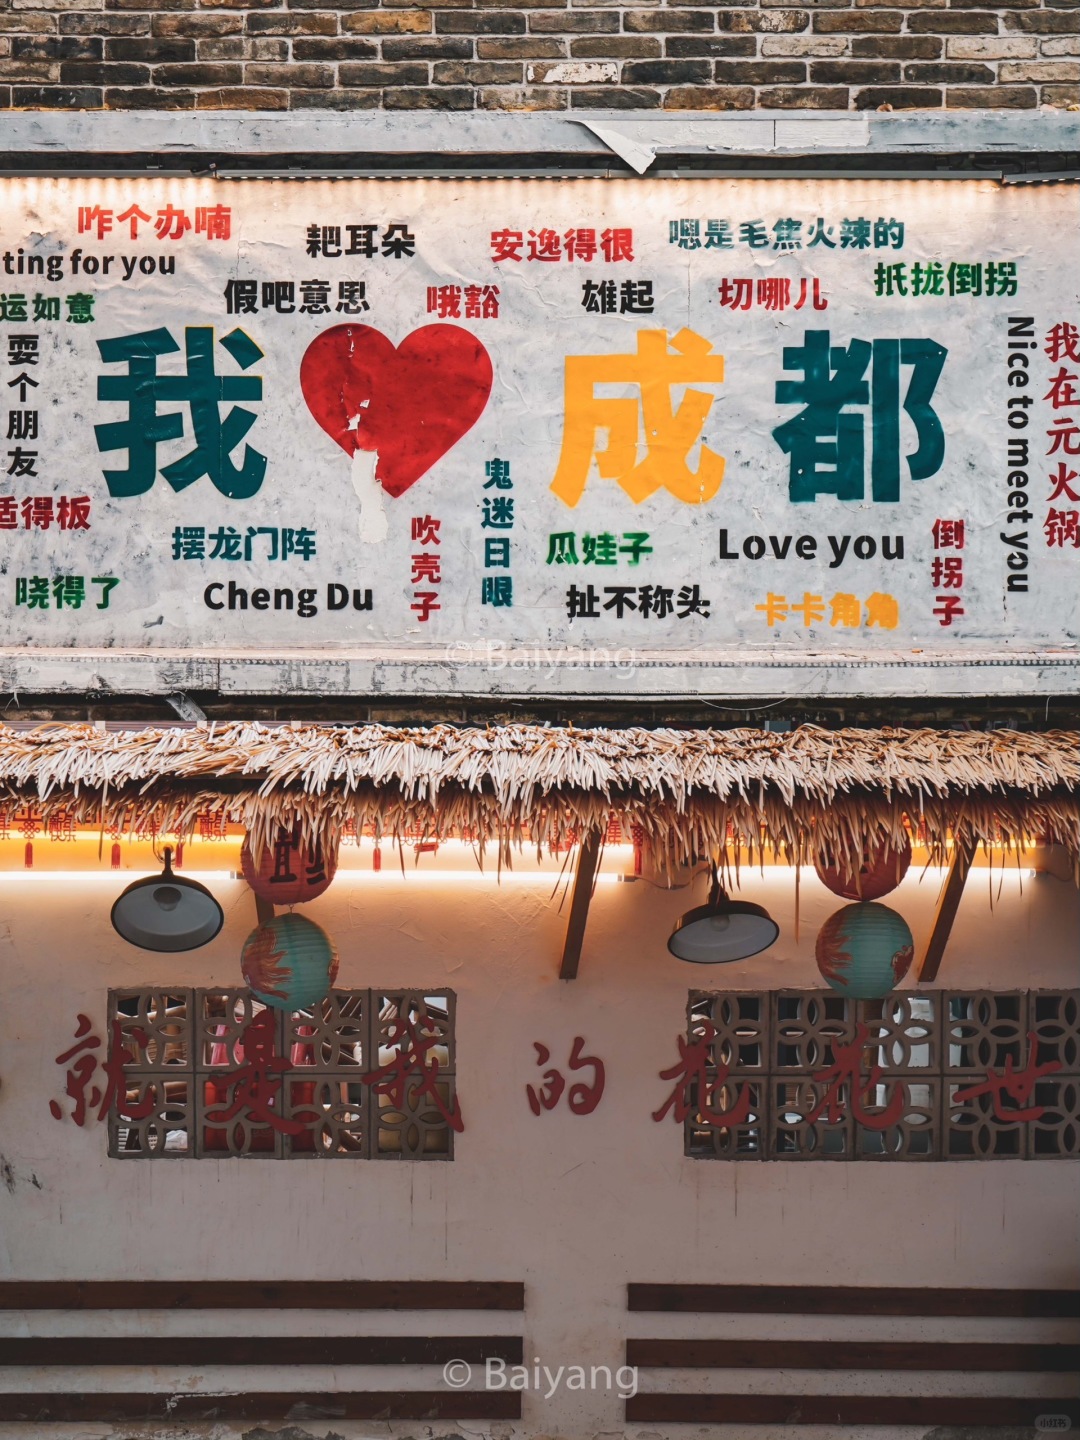 咋个办喃
耙耳朵
安逸得很
嗯是毛焦火辣的
ting for you
假吧意思
哦豁
雄起
切哪儿
扺拢倒拐
运如意
耍个朋友
我
成都
Nice to meet you
我在元火锅
适得板
摆龙门阵
吹壳子
鬼迷日眼
瓜娃子
Love you
倒拐子
晓得了
Cheng Du
扯不称头
卡卡角角
© Baiyang
就是我的花花世
© Baiyang
小红书